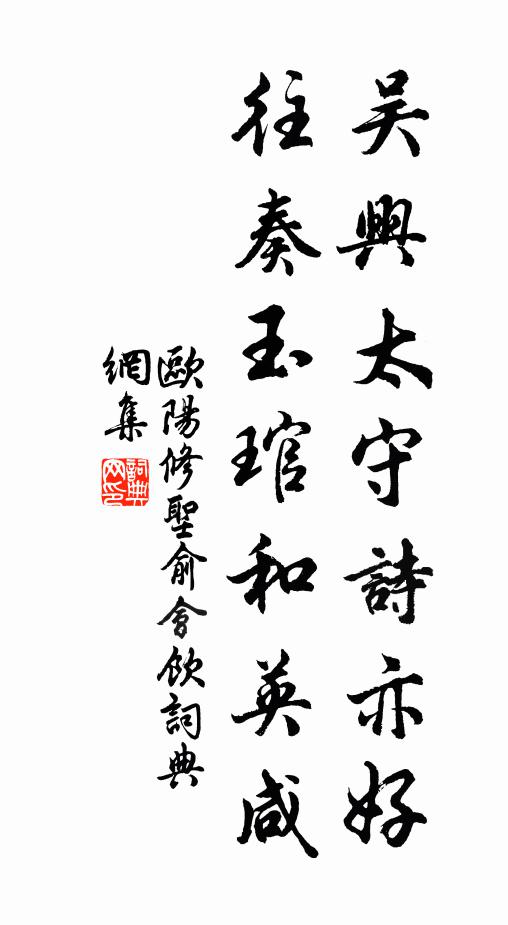 吳興太守詩亦好
往奏玉琯和英咸
歐陽修聖俞會飲詞典
網集
詞典
网印